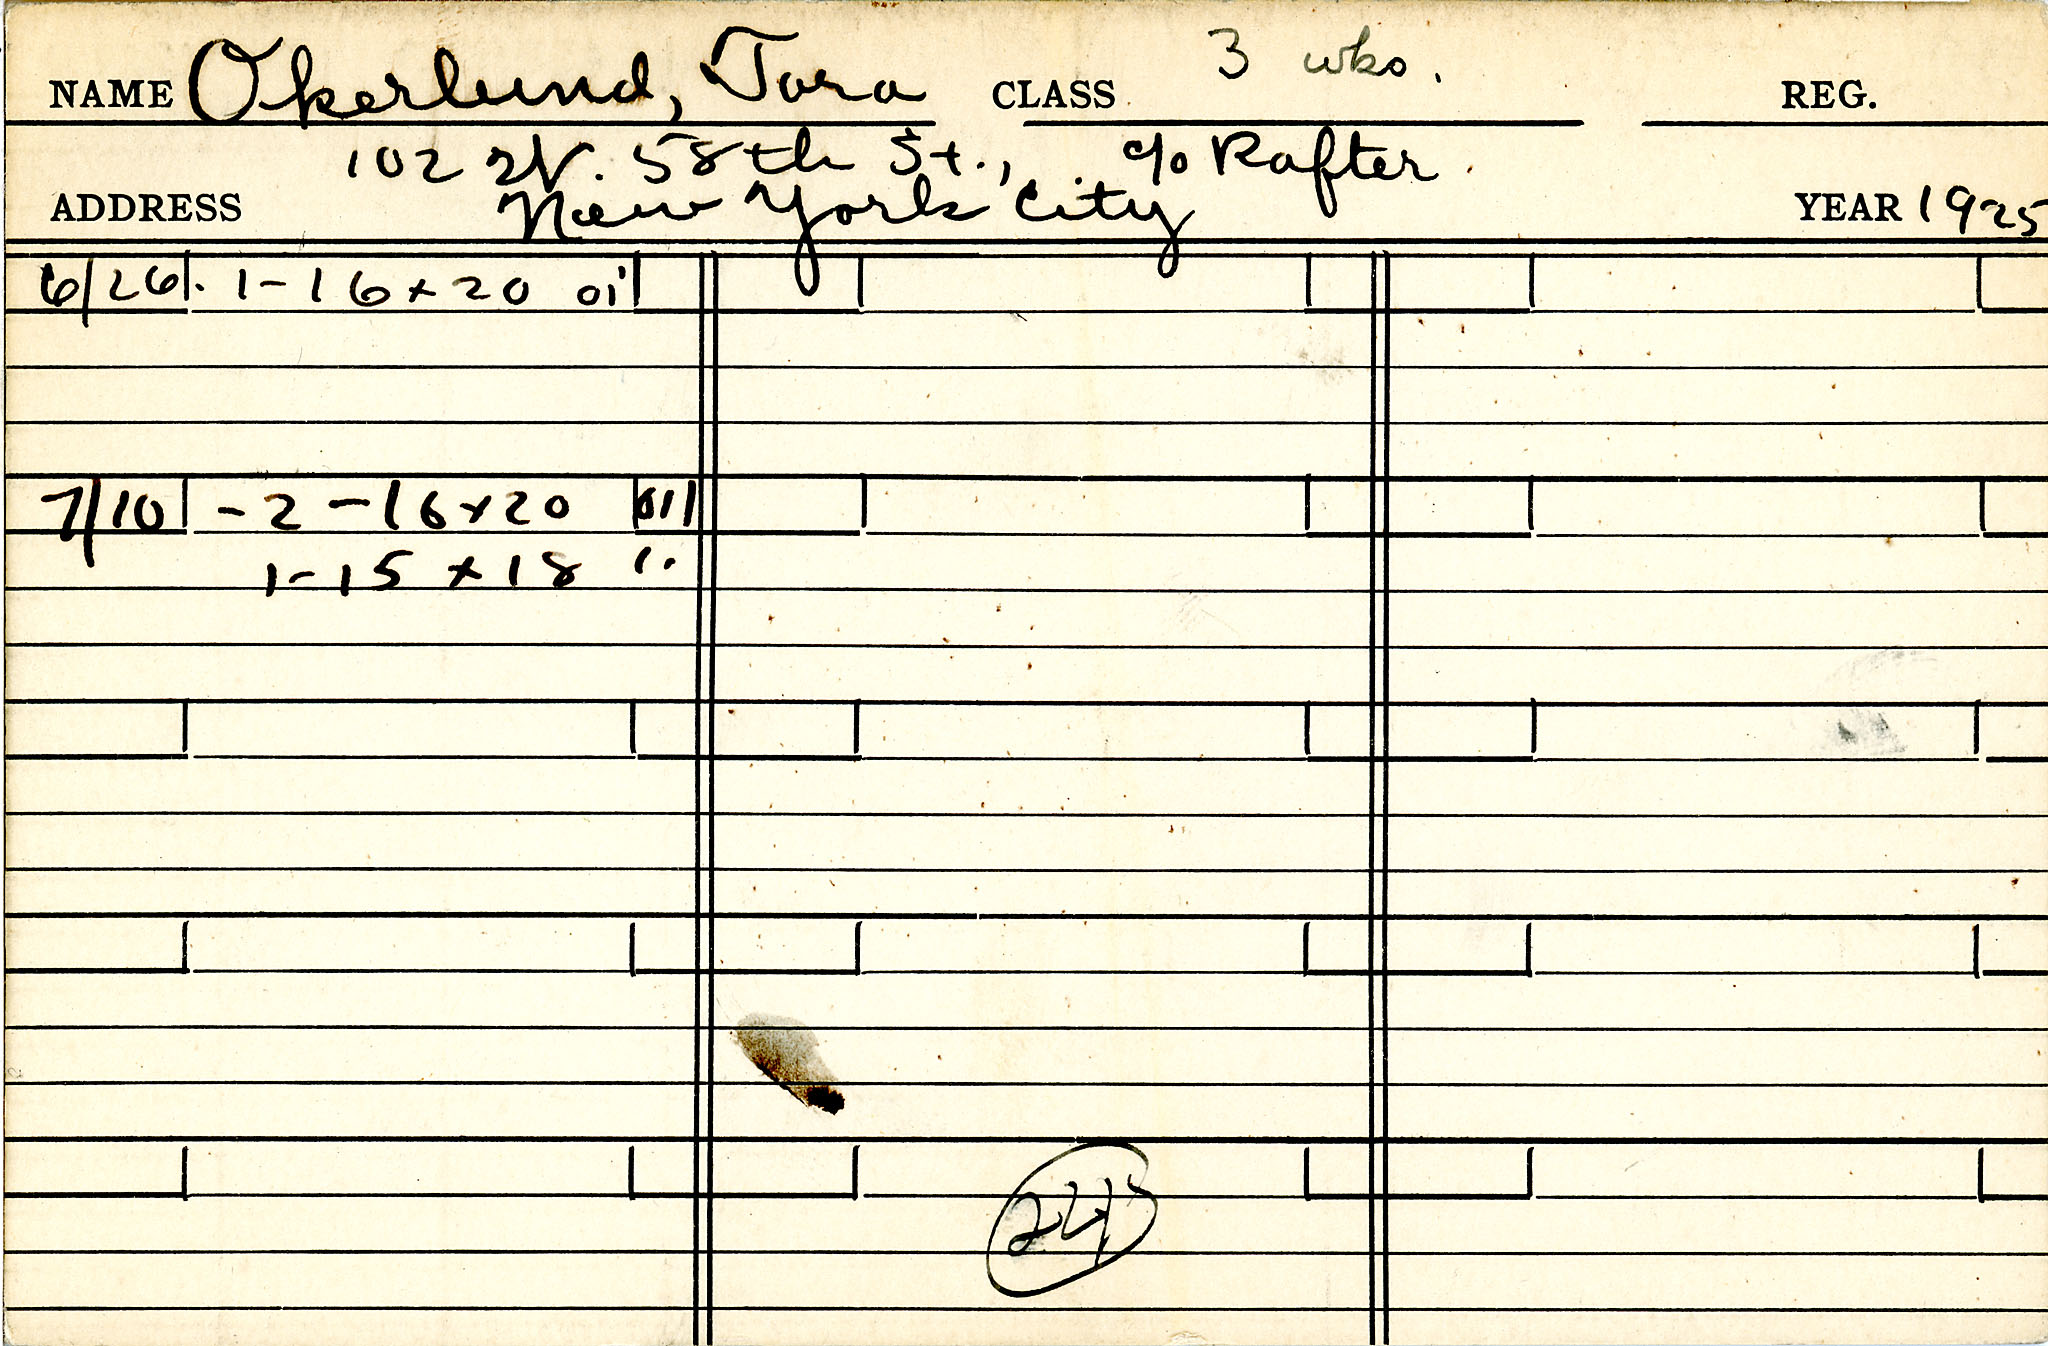 NAME Okerlund, Tora CLASS 3 wks. REG.
102 W. 58th St., c/o Rafter
ADDRESS New York City YEAR 1925
6/26. 1-16x20 oil
7/10 -2-16x20 oil
1-15x18 "